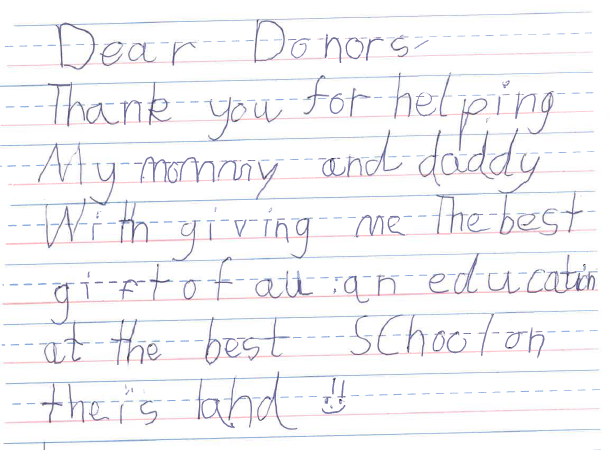 Dear Donors,
Thank you for helping
My mommy and daddy
With giving me The best
gift of all : an education
at the best SChool on
theis land